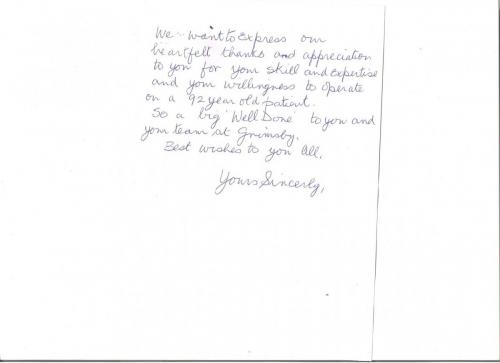 We want to Express our
heartfelt thanks and appreciation
to you for your skill and expertise
and your willingness to operate
on a 92 year old patient.
So a big 'Well Done' to you and
your team at Grimsby.
Best wishes to you all.
Yours Sincerly,